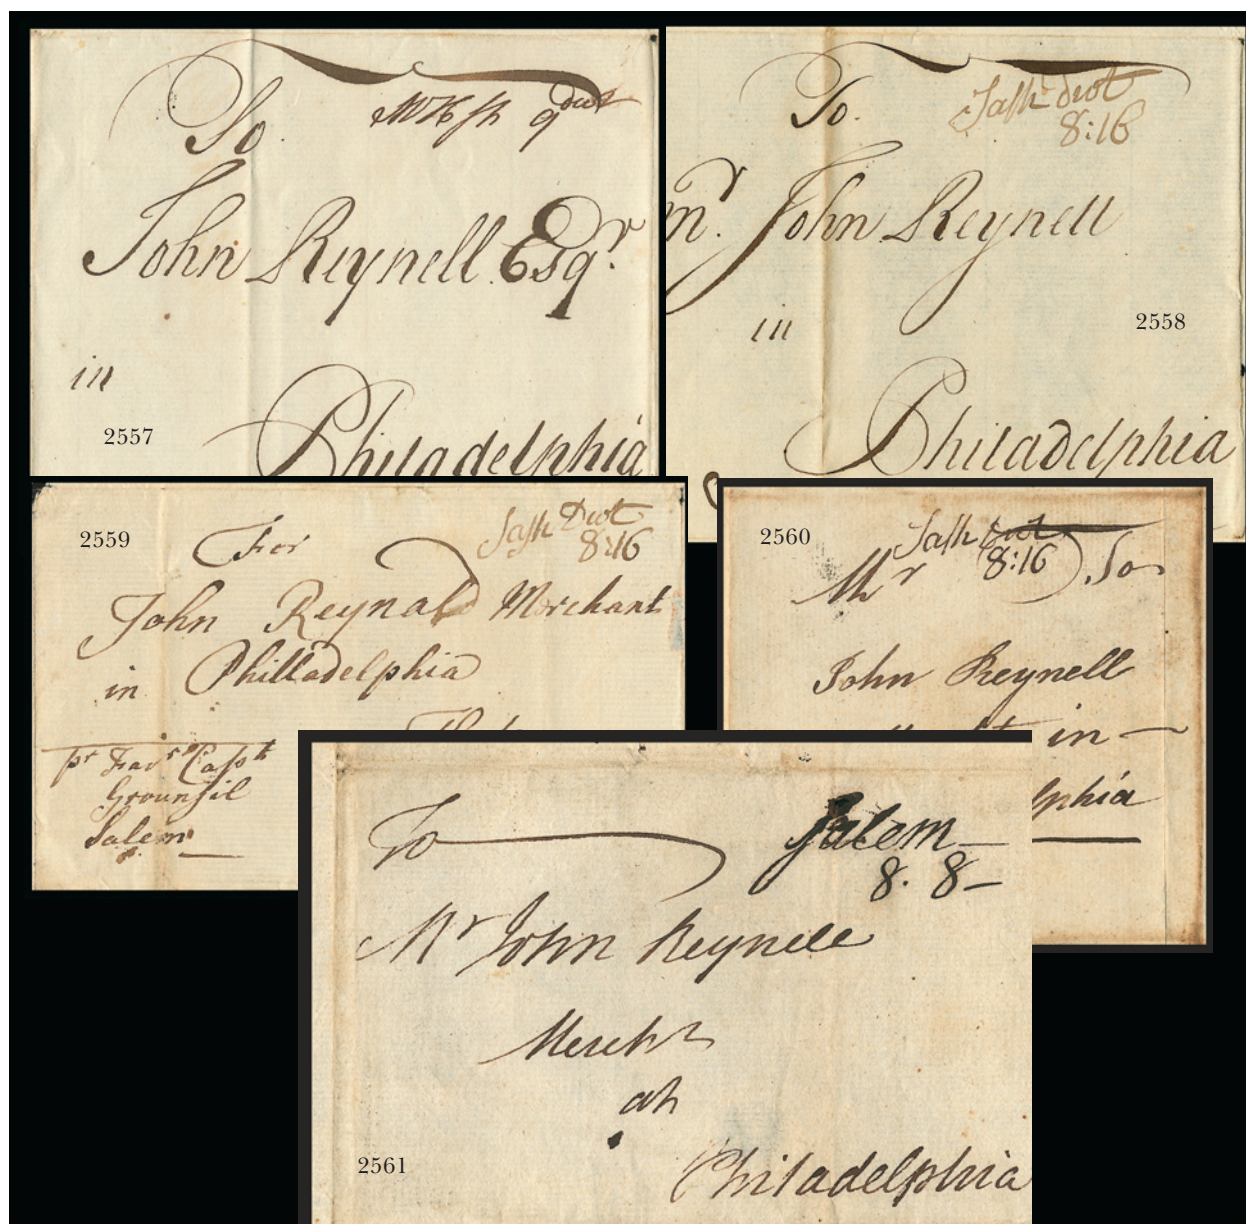 To
9 dwt
John Reynell Esqr.
in
2557
Philadelphia
To.
dwt
8:16
mr. John Reynell
in
2558
Philadelphia
2559
For
Dwt
8:16
John Reynald Merchant
in Philladelphia
pr Favr Capt
Grounsil
Salem
2560
dwt
8:16
Mr To
John Reynell
in
lphia
To Salem
8. 8
Mr John Reynell
Mercht
at
2561
Philadelphia